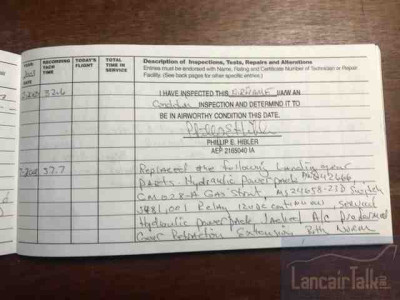 DATE
RECORDING
TACH
TIME
TODAY'S
FLIGHT
TOTAL
TIME IN
SERVICE
Description of Inspections, Tests, Repairs and Alterations
Entries must be endorsed with Name, Rating and Certificate Number of Technician or Repair
Facility. (See back pages for other specific entries.)
32.6
I HAVE INSPECTED THIS AIRFRAME IAW AN
Condition INSPECTION AND DETERMINED IT TO
BE IN AIRWORTHY CONDITION THIS DATE.
PHILLIP E. HIBLER
AEP 2165040 IA
37.7
Replaced the following Landing gear
parts. Hydraulic power pack
Gas Strut, Switch
Relay 12VDC continuous, serviced
Hydraulic power pack Jacked A/C Performed
Gear Retraction Extension Both Norm
LancairTalk